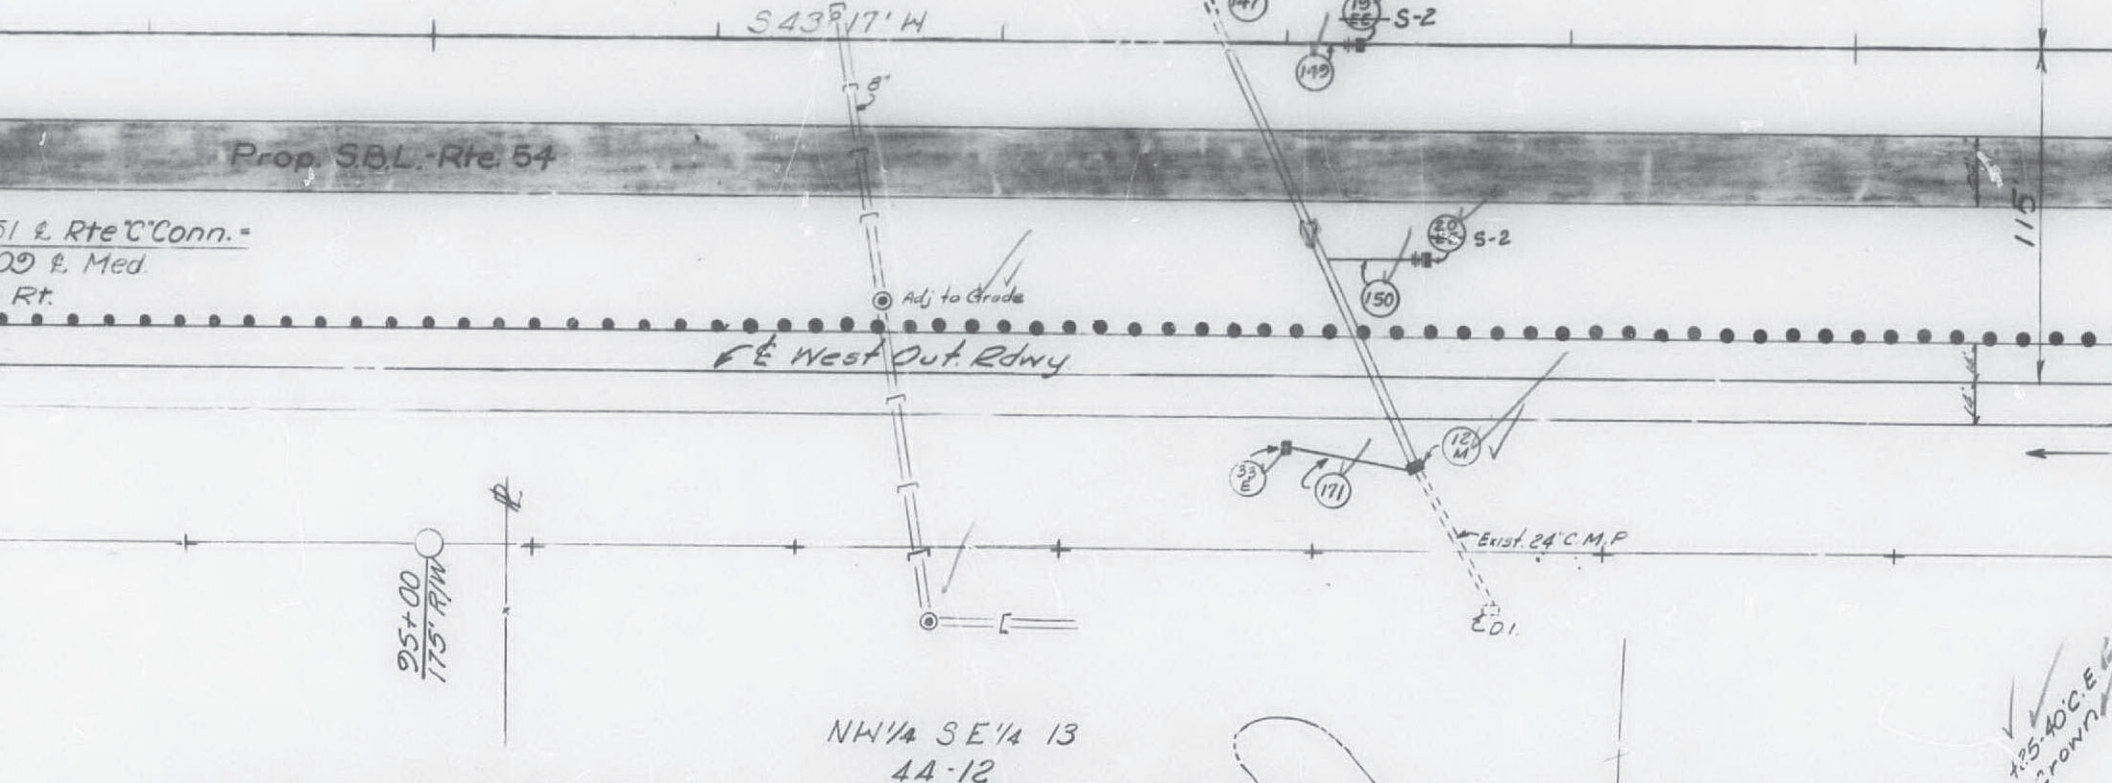 S 43° 17' W
147
19
EE
S-2
149
8"
Prop. S.B.L.-Rte. 54
51 ℄ Rte "C" Conn. =
09 ℄ Med.
Rt.
20
S-2
150
115'
Adj to Grade
℄ West Out. Rdwy
14'
12
M
33
E
171
Exist. 24" C.M.P
℄ D.I.
95+00
175' R/W
NW 1/4 SE 1/4 13
44-12
+25-40' C.E.